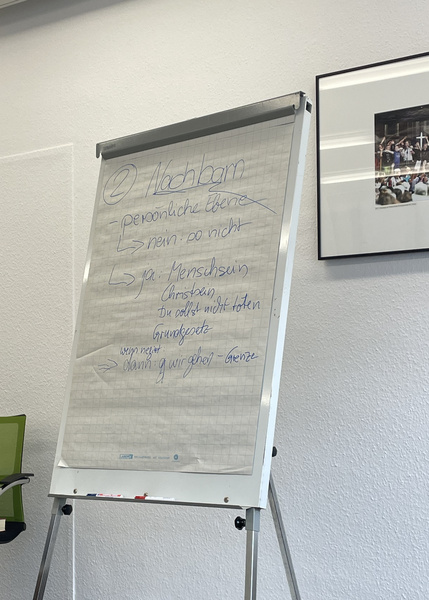 ② Nachbarn
- persönliche Ebene
↳ nein: so nicht
↳ ja: Menschsein
Christsein
Du sollst nicht töten
Grundgesetz
wenn nicht
⇒ dann wir gehen - Grenze